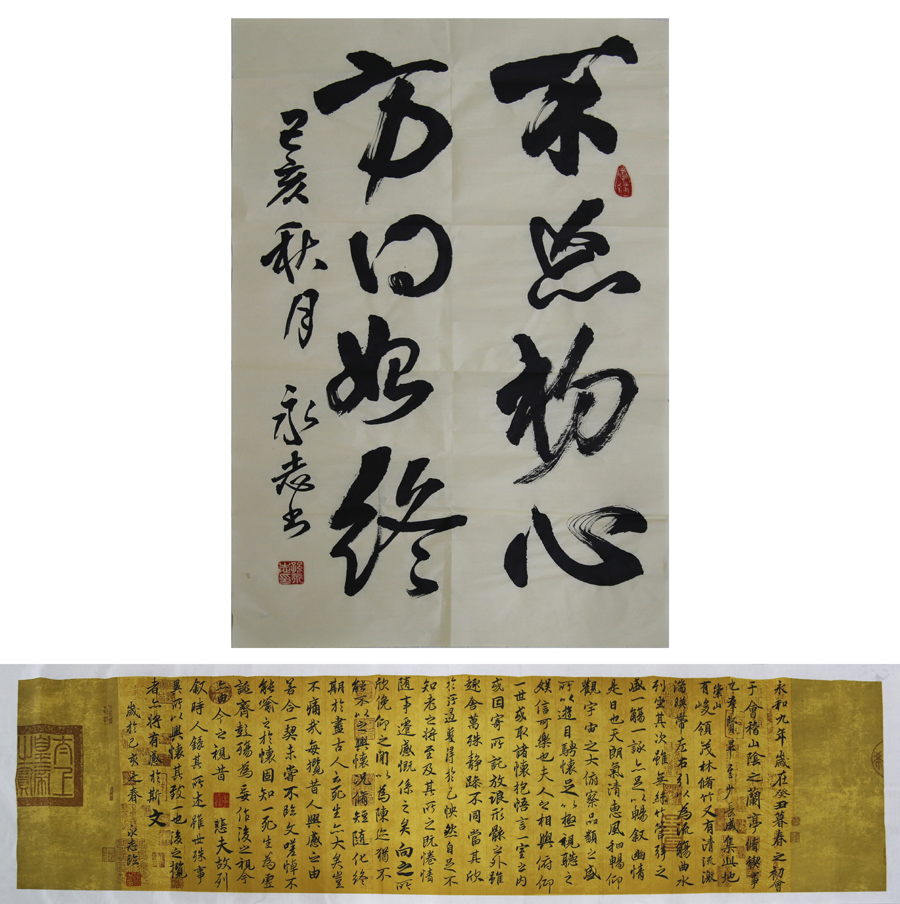 不忘初心
方得始终
己亥秋月 永志书
永和九年歲在癸丑暮春之初會
于會稽山陰之蘭亭脩禊事
也羣賢畢至少長咸集此地
崇山
有峻領茂林脩竹又有清流激
湍暎帶左右引以為流觴曲水
列坐其次雖無絲竹管弦之
盛一觴一詠亦足以暢敘幽情
是日也天朗氣清惠風和暢仰
觀宇宙之大俯察品類之盛
所以遊目騁懷足以極視聽之
娛信可樂也夫人之相與俯仰
一世或取諸懷抱悟言一室之內
或因寄所託放浪形骸之外雖
趣舍萬殊靜躁不同當其欣
於所遇暫得於己怏然自足不
知老之將至及其所之既惓情
隨事遷感慨係之矣向之所
欣俛仰之閒以為陳迹猶不
能不以之興懷況脩短隨化終
期於盡古人云死生亦大矣豈
不痛哉每攬昔人興感之由
若合一契未嘗不臨文嗟悼不
能喻之於懷固知一死生為虛
誕齊彭殤為妄作後之視今
亦由今之視昔 悲夫故列
敘時人錄其所述雖世殊事
異所以興懷其致一也後之攬
者亦將有感於斯文
歲於己亥之春 永志臨